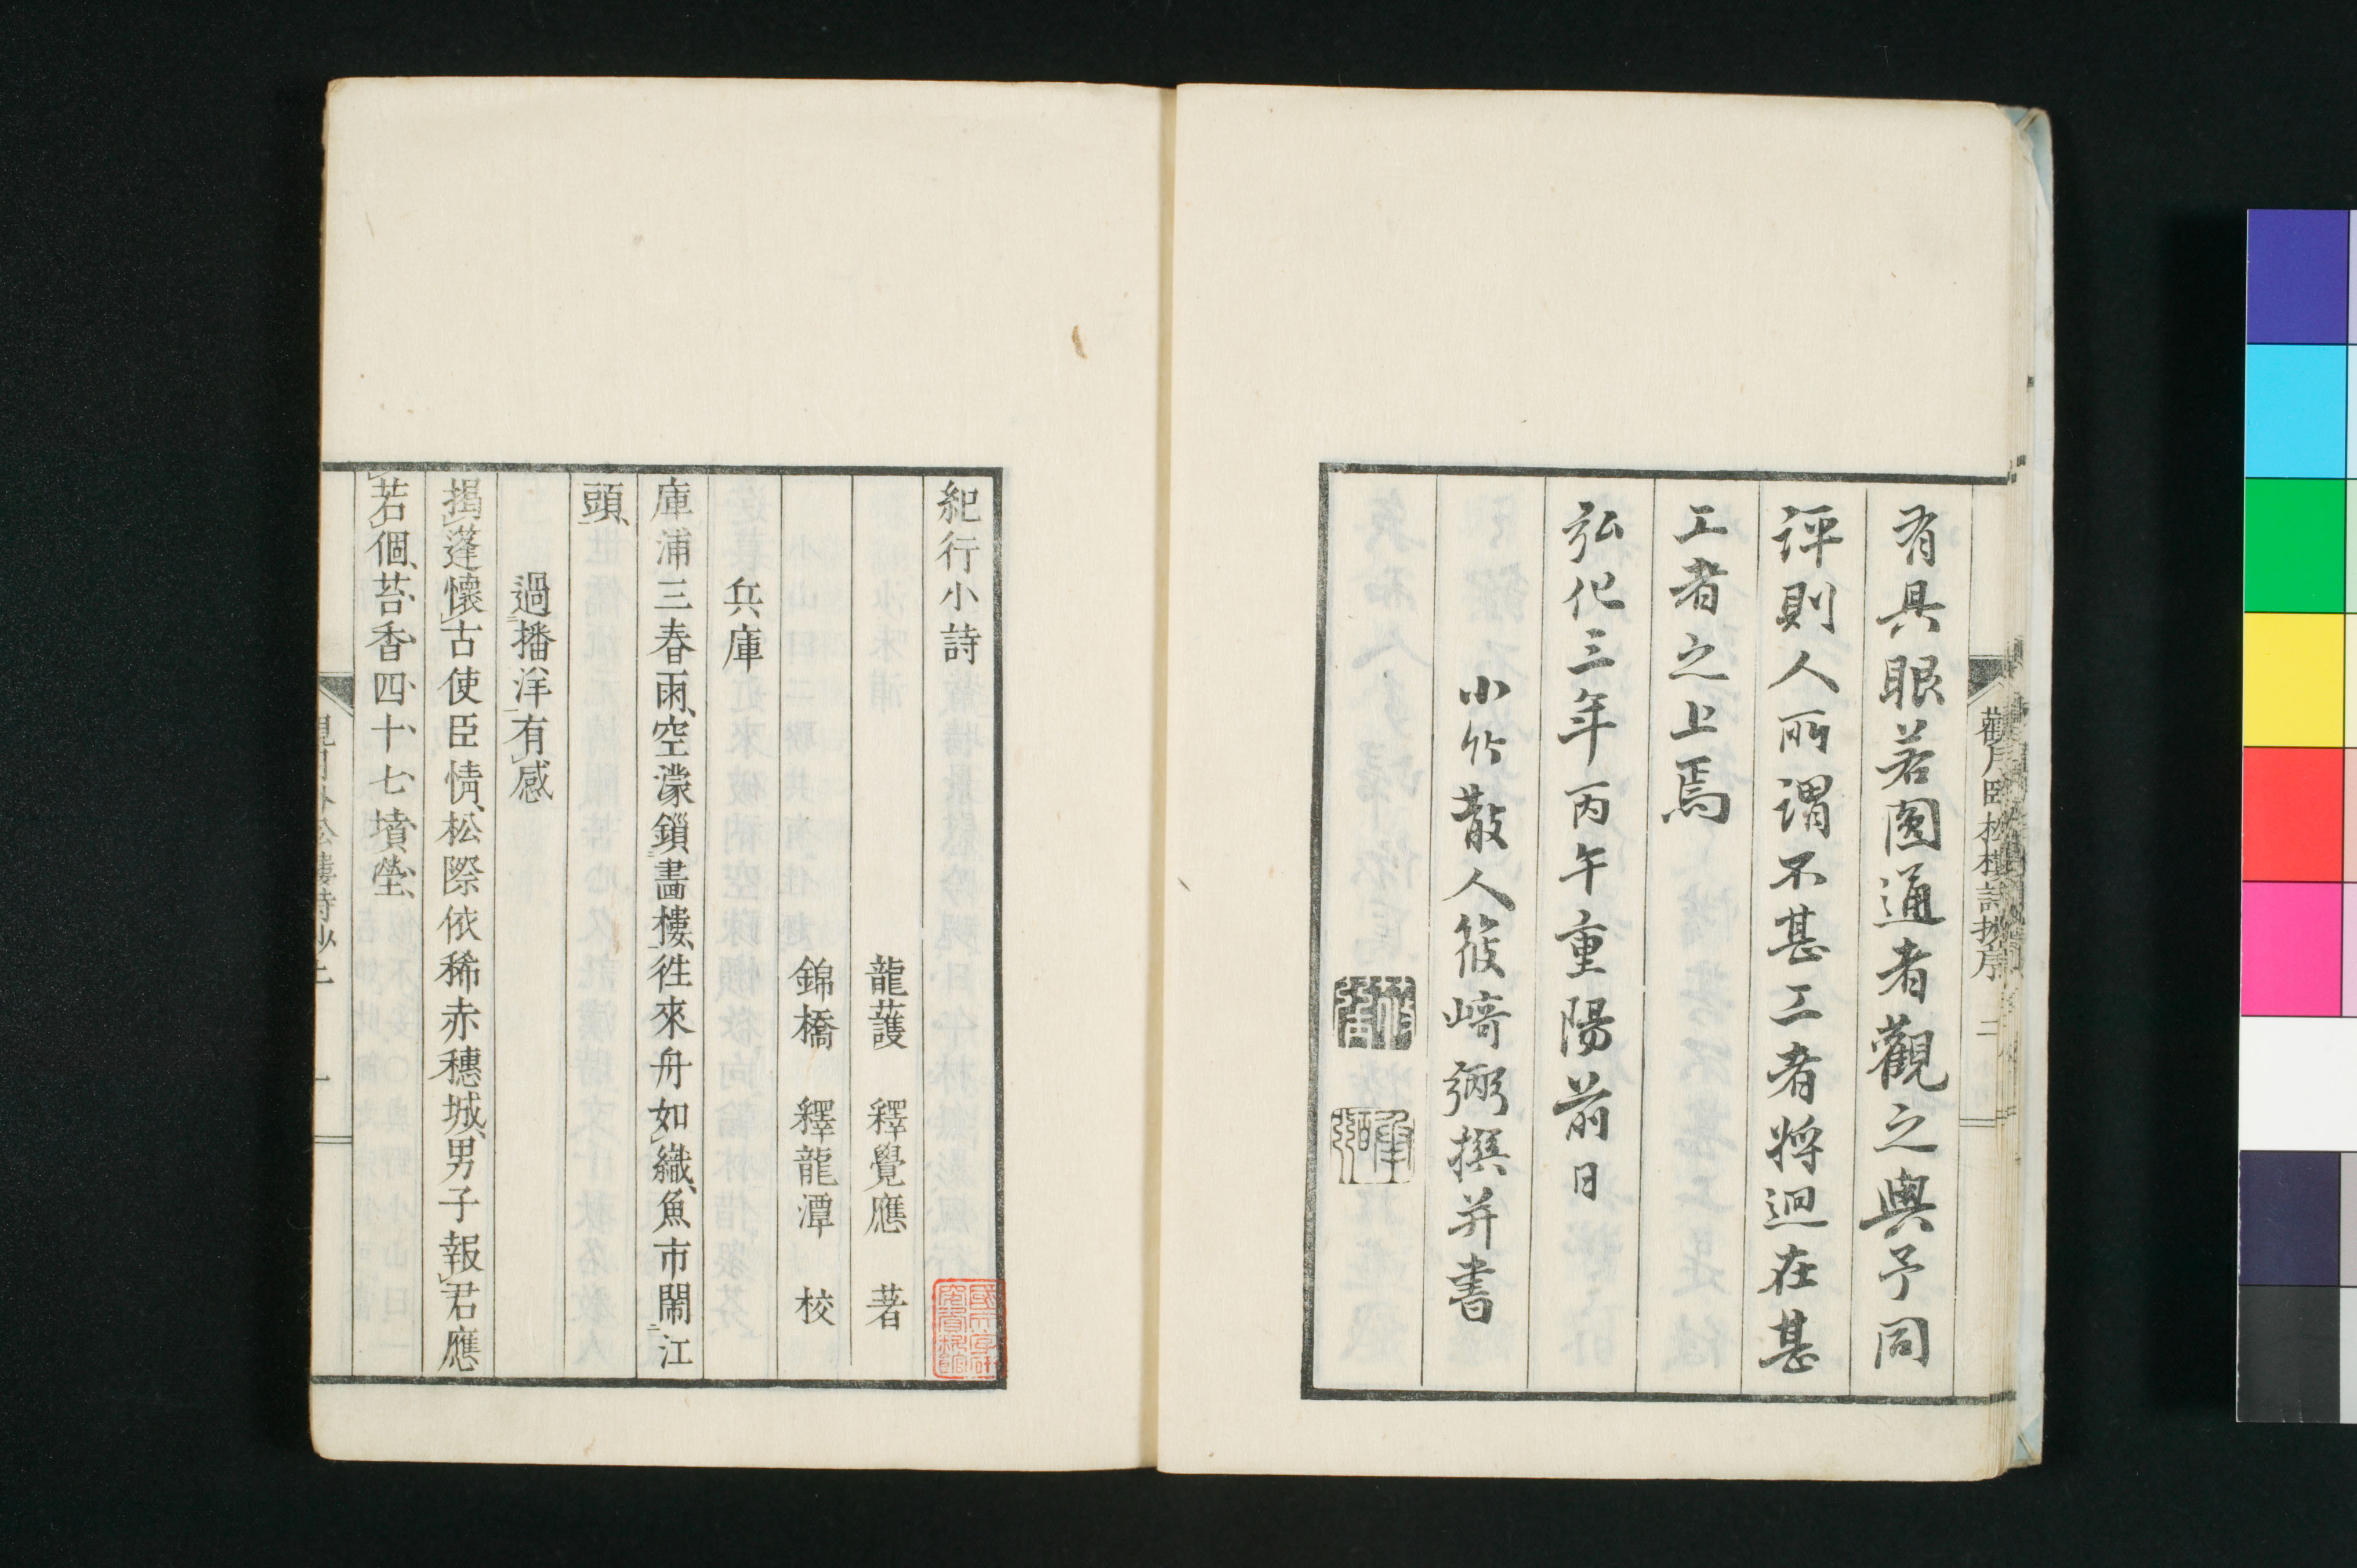 有具眼若圓通者觀之與予同
評則人所謂不甚工者將迴在甚
工者之上焉
弘化三年丙午重陽前日
小竹散人筱崎弼撰并書
紀行小詩
龍護 釋覺應 著
錦橋 釋龍潭 校
兵庫
庫浦三春雨空濛鎖畵樓徃來舟如織魚市鬧江
頭
過播洋有感
揭蓬懷古使臣情松際依稀赤穗城男子報君應
若個苔香四十七墳塋